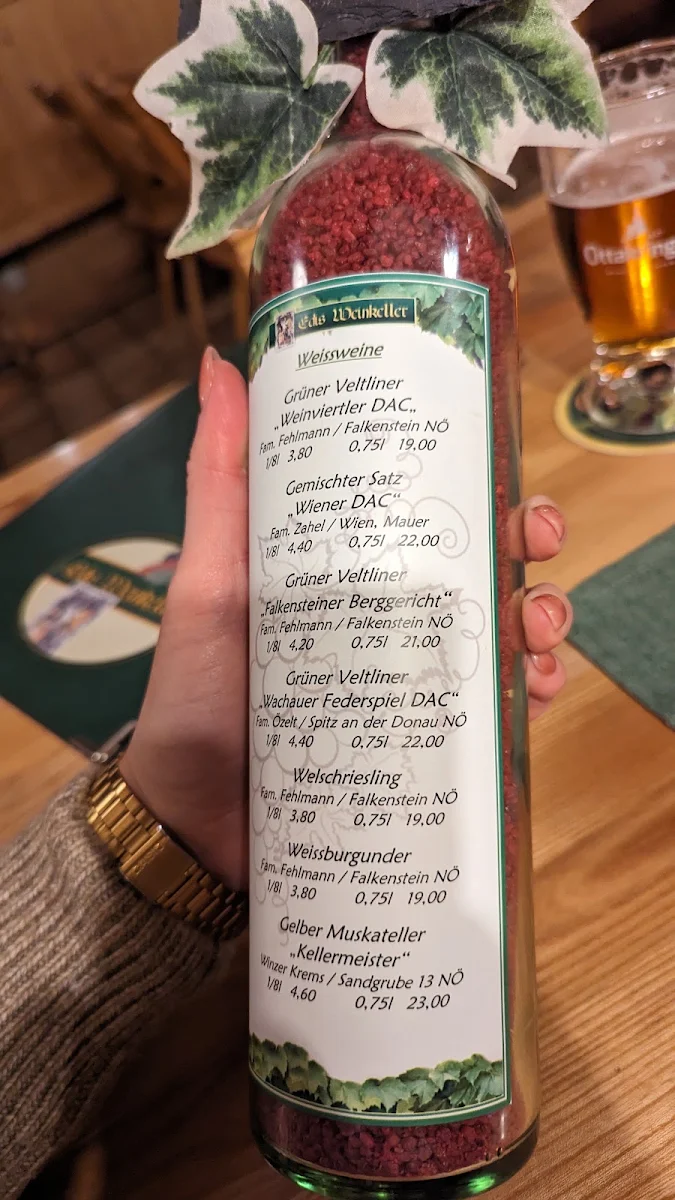 Edis Weinkeller
Weissweine
Grüner Veltliner
„Weinviertler DAC„
Fam. Fehlmann / Falkenstein NÖ
1/8l 3,80 0,75l 19,00
Gemischter Satz
„Wiener DAC“
Fam. Zahel / Wien, Mauer
1/8l 4,40 0,75l 22,00
Grüner Veltliner
„Falkensteiner Berggericht“
Fam. Fehlmann / Falkenstein NÖ
1/8l 4,20 0,75l 21,00
Grüner Veltliner
„Wachauer Federspiel DAC“
Fam. Özelt / Spitz an der Donau NÖ
1/8l 4,40 0,75l 22,00
Welschriesling
Fam. Fehlmann / Falkenstein NÖ
1/8l 3,80 0,75l 19,00
Weissburgunder
Fam. Fehlmann / Falkenstein NÖ
1/8l 3,80 0,75l 19,00
Gelber Muskateller
„Kellermeister“
Winzer Krems / Sandgrube 13 NÖ
1/8l 4,60 0,75l 23,00